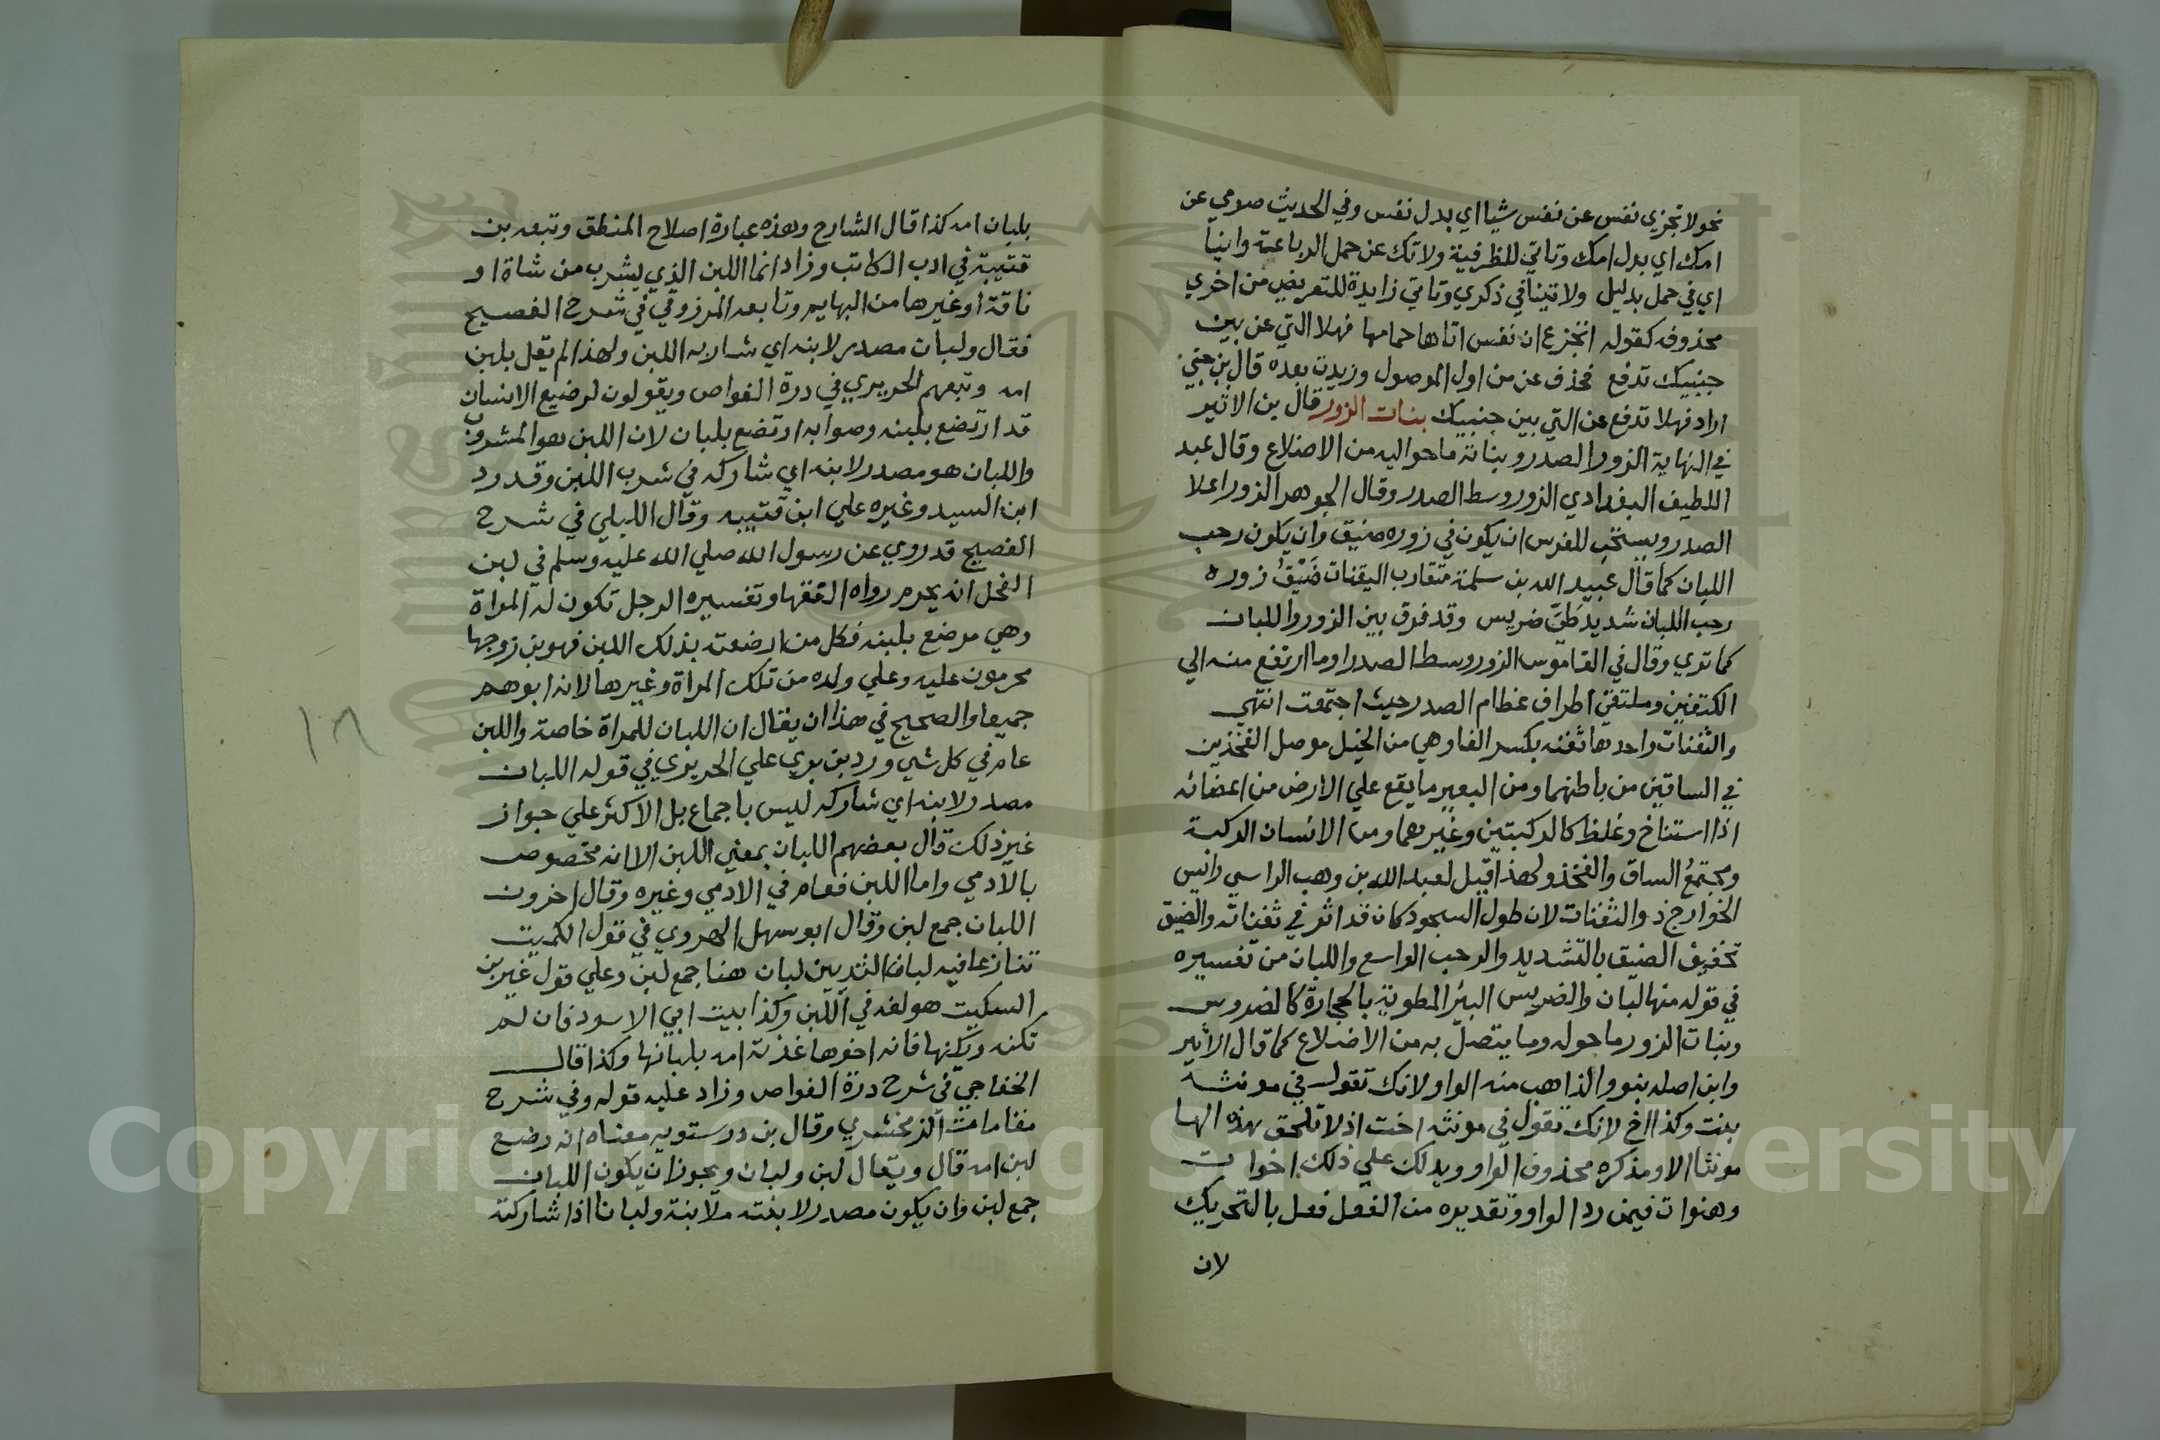 نحو لا تجزي نفس عن نفس شيا اي بدل نفس وفي الحديث صومي عن
امك اي بدل امك وتاتي للظرفية ولا تك عن حمل الرباعة وانيا
اي في حمل بدليل ولا تنيا في ذكري وتاتي زايدة للتعريض من اخري
محذوفه كقوله اتجزع ان نفس اتاها حمامها فهلا التي عن بين
جنبيك تدفع فحذف عن من اول الموصول وزيدت بعده قال بن جني
اراد فهلا تدفع عن التي بين جنبيك بنات الزور قال بن الاثير
في النهاية الزور الصدر وبناته ما حواليه من الاضلاع وقال عبد
اللطيف البغدادي الزور وسط الصدر وقال الجوهر الزور اعلا
الصدر ويستحب للفرس ان يكون في زوره ضيق وان يكون رحب
اللبان كما قال عبيد الله بن سلمة متقارب الثفنات ضَيْقٌ زوره
رحب اللبان شديد طَيّ ضريس وقد فرق بين الزور واللبان
كما تري وقال في القاموس الزور وسط الصدر او ما ارتفع منه الي
الكتفين وملتقي اطراف عظام الصدر حيث اجتمعت انتهي
والثفنات واحدتها ثفنه بكسر الفا وهي من الخيل موصل الفخذين
في الساقين من باطنهما ومن البعير ما يقع علي الارض من اعضائه
اذا استناخ وغلظ كالركبتين وغيرهما ومن الانسان الركبة
ومجتمعُ الساق والفخذ ولهذا قيل لعبد الله بن وهب الراسبي رائيس
الخوارج ذو الثفنات لان طول السجود كان قد اثر في ثفناته والضيق
تخفيف الضيق بالتشديد والرحب الواسع واللبان من تفسيره
في قوله منها لبان والضريس البئر المطوية بالحجارة كالضروس
وبنات الزور ما حوله وما يتصل به من الاضلاع كما قال الاثير
وابن اصله بنو والذاهب منه الواو لانك تقول في مونثه
بنت وكذا اخ لانك تقول في مونثه اخت اذ لا تلحق هذه الها
مونثا الا ومذكره محذوف الواو ويدلك علي ذلك اخوات
وهنوات فيمن رد الواو وتقديره من الفعل فعل بالتحريك
لان
بلبان امه كذا قال الشارح وهذه عبارة اصلاح المنطق وتبعه بن
قتيبة في ادب الكاتب وزاد انما اللبن الذي يشرب من شاة او
ناقة او غيرها من البهايم وتابعه المرزوقي في شرح الفصيح
فقال ولبان مصدر لابنه اي شاربه اللبن ولهذا لم يقل بلبن
امه وتبعهم الحريري في درة الغواص ويقولون لرضيع الانسان
قد ارتضع بلبنه وصوابه ارتضع بلبان لان اللبن هو المشروب
واللبان هو مصدر لابنه اي شاركه في شرب اللبن وقد رد
ابن السيد وغيره علي ابن قتيبه وقال اللبلي في شرح
الفصيح قد روي عن رسول الله صلي الله عليه وسلم في لبن
الفحل انه يحرم رواه الفقها وتفسيره الرجل تكون له المراة
وهي مرضع بلبنه فكل من ارضعته بذلك اللبن فهو بن زوجها
محرمون عليه وعلي ولده من تلك المراة وغيرها لانه ابوهم
جميعا والصحيح في هذا ان يقال ان اللبان للمراة خاصة واللبن
عام في كل شي ورد بن بري علي الحريري في قوله اللبان
مصدر لابنه اي شاركه ليس باجماع بل الاكثر علي جواز
غير ذلك قال بعضهم اللبان بمعني اللبن الا انه مخصوص
بالادمي واما اللبن فعام في الادمي وغيره وقال اخرون
اللبان جمع لبن وقال ابو سهل الهروي في قول الكميت
تنازعا فيه لبان الثديين لبان هنا جمع لبن وعلي قول غير بن
السكيت هو لغة في اللبن وكذا بيت ابي الاسود فان لم
تكنه ويكنها فانه اخوها غذته امه بلبانها وكذا قال
الخفاجي في شرح درة الغواص وزاد عليه قوله وفي شرح
مقامات الزمخشري وقال بن درستويه معناه انه رضع
لبن امه قال ويقال لبن ولبان ويجوز ان يكون اللبان
جمع لبن وان يكون مصدر لابنته ملابنة ولبانا اذا شاركته
١٨
Copyright © King Saud University